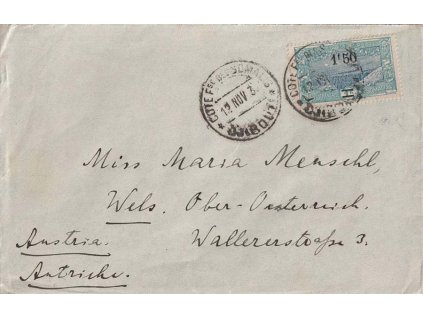 COTE FSE DES SOMALIS
12 NOV 3
DJIBOUTI
1f50
Miss Maria Menschl,
Wels. Ober-Oesterreich.
Wallererstraße 3.
Austria.
Autriche.